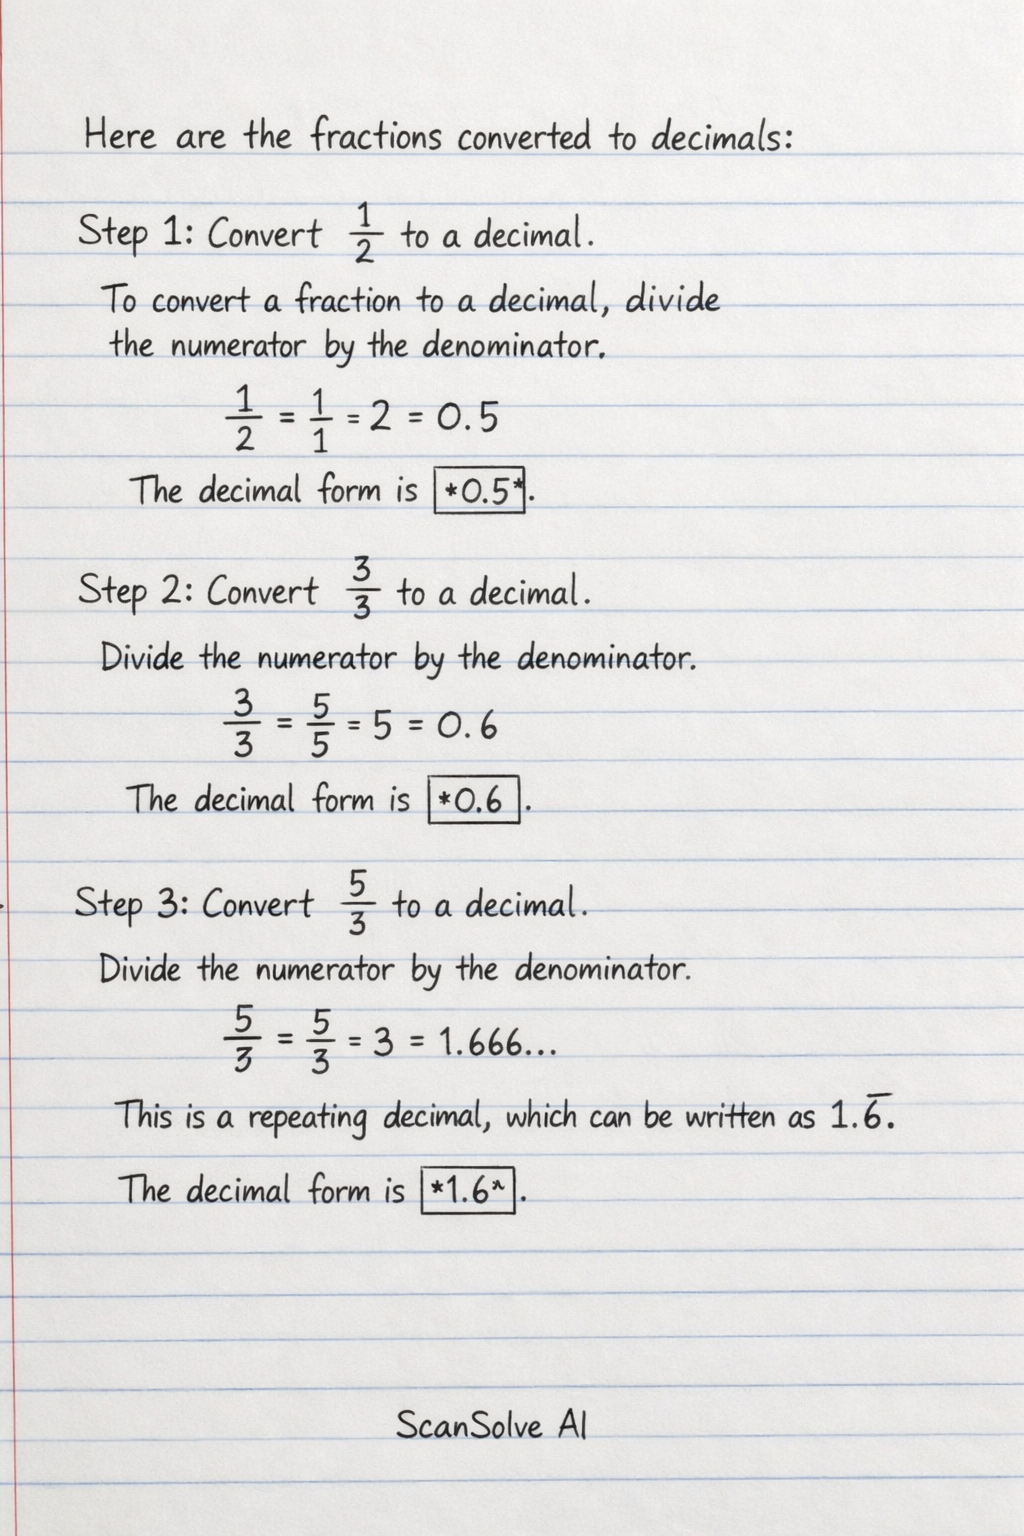 Here are the fractions converted to decimals:
Step 1: Convert 1/2 to a decimal.
To convert a fraction to a decimal, divide
the numerator by the denominator.
1/2 = 1/1 = 2 = 0.5
The decimal form is *0.5*.
Step 2: Convert 3/3 to a decimal.
Divide the numerator by the denominator.
3/3 = 5/5 = 5 = 0.6
The decimal form is *0.6.
Step 3: Convert 5/3 to a decimal.
Divide the numerator by the denominator.
5/3 = 5/3 = 3 = 1.666...
This is a repeating decimal, which can be written as 1.6̅.
The decimal form is *1.6^.
ScanSolve AI